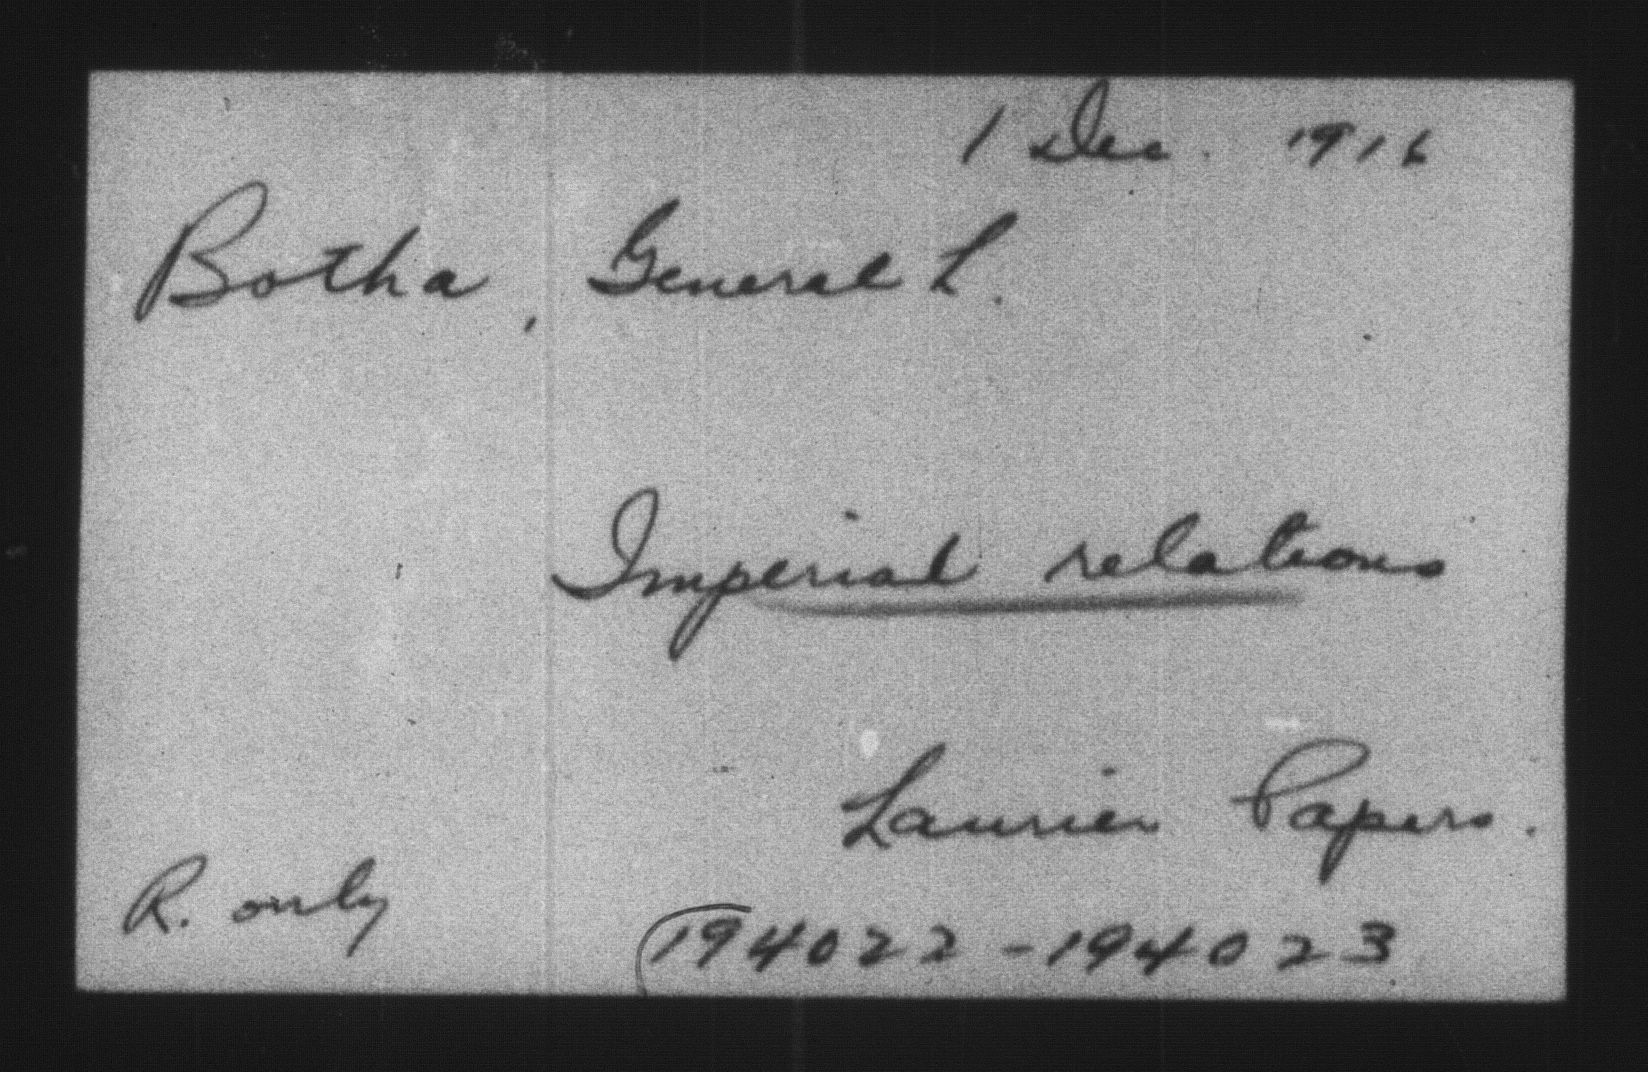 1 Dec. 1916
Botha, General L.
Imperial relations
Laurier Papers.
R. only
194022-194023